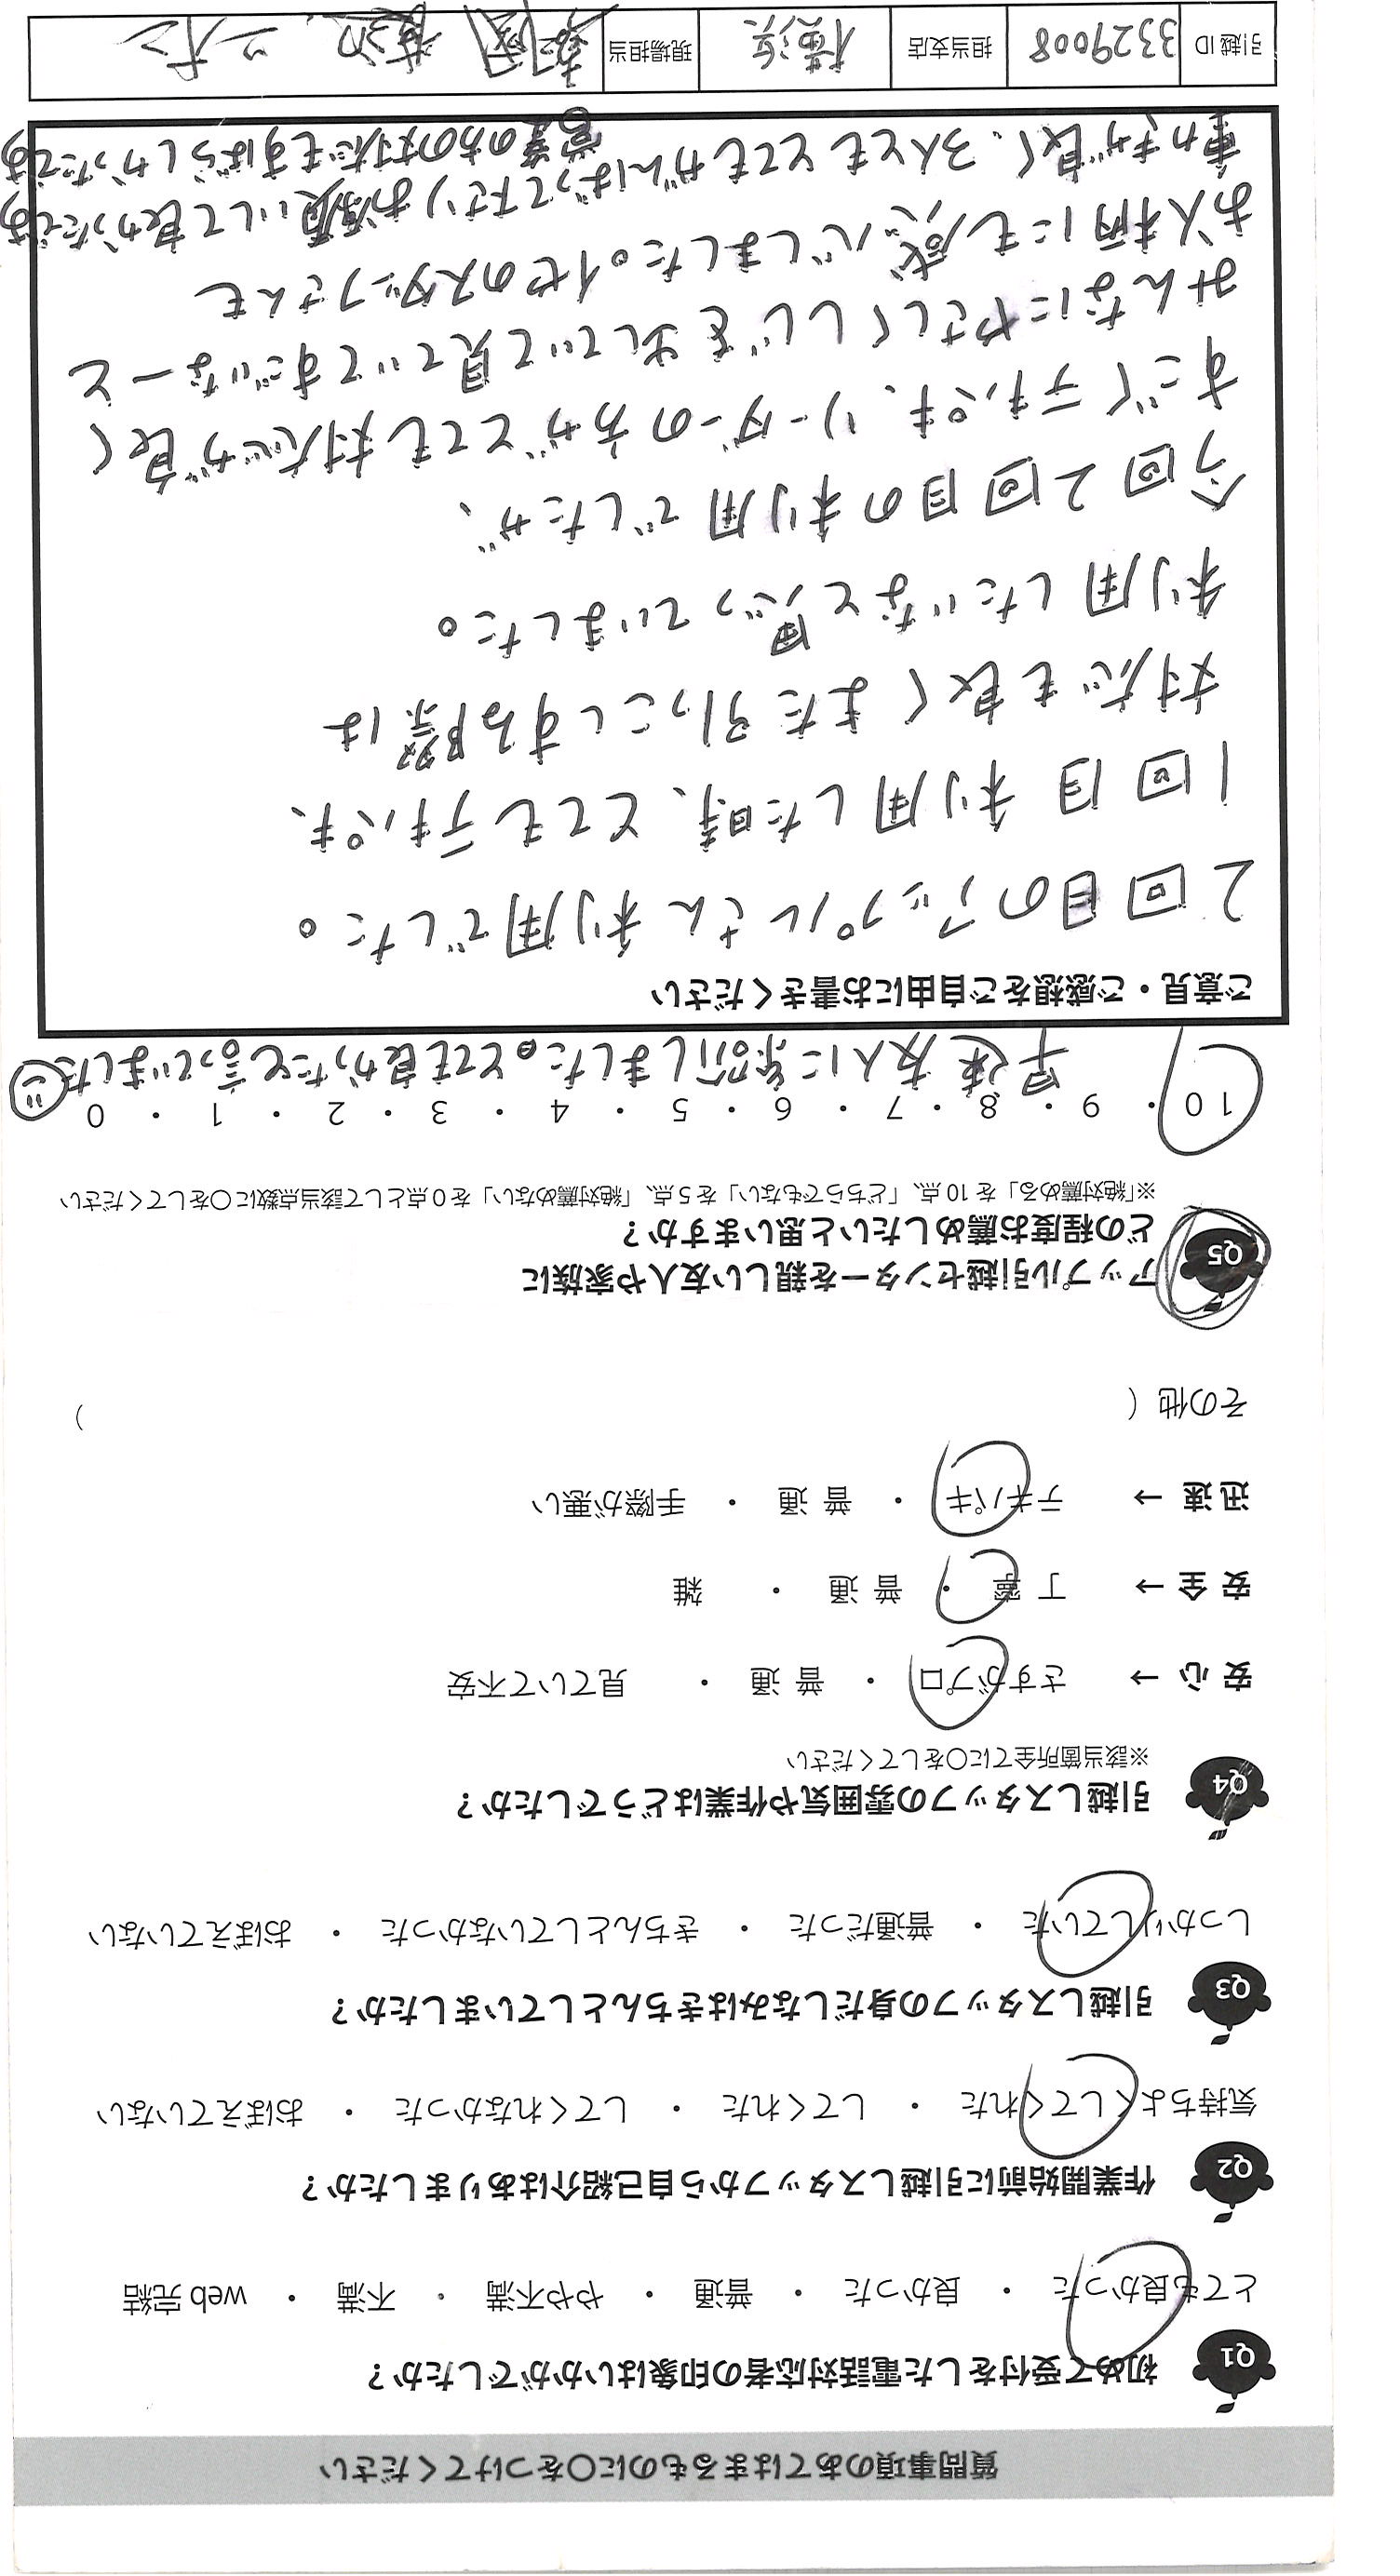 質問事項のあてはまるものに○をつけてください
Q1 初めて受付をした電話対応者の印象はいかがでしたか？
とても良かった ・ 良かった ・ 普通 ・ やや不満 ・ 不満 ・ web 完結
Q2 作業開始前に引越しスタッフから自己紹介はありましたか？
気持ちよくしてくれた ・ してくれた ・ してくれなかった ・ おぼえていない
Q3 引越しスタッフの身だしなみはきちんとしていましたか？
しっかりしていた ・ 普通だった ・ きちんとしていなかった ・ おぼえていない
Q4 引越しスタッフの雰囲気や作業はどうでしたか？
※該当箇所全てに○をしてください
安心 → さすがプロ ・ 普通 ・ 見ていて不安
安全 → 丁寧 ・ 普通 ・ 雑
迅速 → テキパキ ・ 普通 ・ 手際が悪い
その他（ ）
Q5 アップル引越センターを親しい友人や家族に
どの程度お薦めしたいと思いますか？
※「絶対薦める」を 10 点、「どちらでもない」を 5 点、「絶対薦めない」を 0 点として該当点数に○をしてください
10 ・ 9 ・ 8 ・ 7 ・ 6 ・ 5 ・ 4 ・ 3 ・ 2 ・ 1 ・ 0
早速友人に紹介しました。とても良かったと言っていました
ご意見・ご感想をご自由にお書きください
2回目のアップルさん利用でした。
1回目利用した時、とてもテキパキ、
対応も良くまた引っこしする際は
利用したいなと思っていました。
今回2回目の利用でしたが、
すごくテキパキ、リーダーの方がとても対応が良く
みんなにやさしくしじを出していて見ていてすごいなーと
お人柄にも感心しました。他のスタッフさんも
動きが良く、3人ともとてもがんばって下さりお願いして良かったです
営業の方の対応もすばらしかったです
引越ID 3329008 担当支店 横浜 現場担当